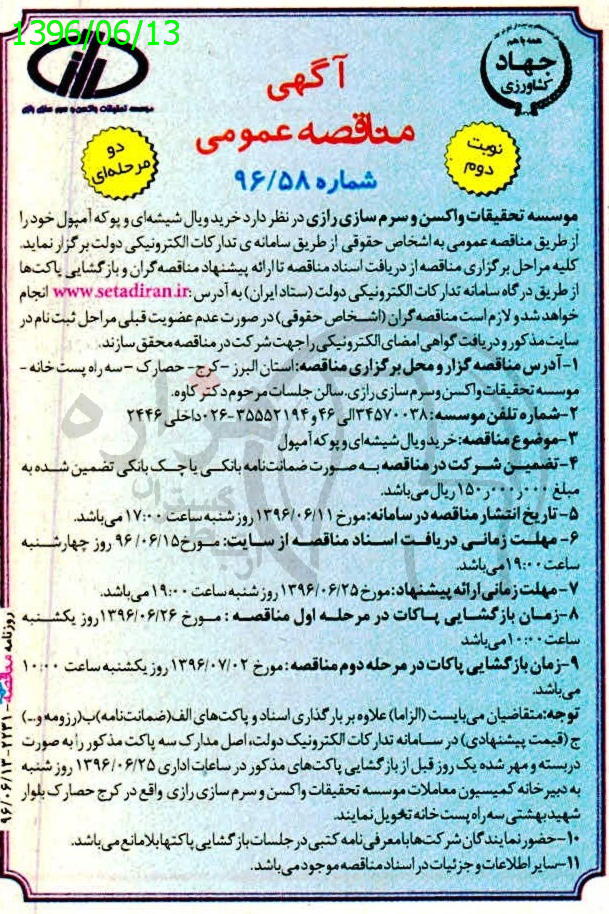 1396/06/13
همه با هم
جهاد
کشاورزی
موسسه تحقیقات واکسن و سرم سازی رازی
آگهی
مناقصه عمومی
نوبت
دوم
دو
مرحله‌ای
شماره ۹۶/۵۸
موسسه تحقیقات واکسن و سرم سازی رازی در نظر دارد خرید ویال شیشه‌ای و پوکه آمپول خود را
از طریق مناقصه عمومی به اشخاص حقوقی از طریق سامانه ی تدارکات الکترونیکی دولت برگزار نماید.
کلیه مراحل برگزاری مناقصه از دریافت اسناد مناقصه تا ارائه پیشنهاد مناقصه‌گران و بازگشایی پاکت‌ها
از طریق درگاه سامانه تدارکات الکترونیکی دولت (ستاد ایران) به آدرس :www.setadiran.ir انجام
خواهد شد و لازم است مناقصه گران (اشخاص حقوقی) در صورت عدم عضویت قبلی مراحل ثبت نام در
سایت مذکور و دریافت گواهی امضای الکترونیکی را جهت شرکت در مناقصه محقق سازند.
۱-آدرس مناقصه گزار و محل برگزاری مناقصه: استان البرز -کرج- حصارک -سه راه پست خانه -
موسسه تحقیقات واکسن و سرم سازی رازی. سالن جلسات مرحوم دکتر کاوه.
۲-شماره تلفن موسسه: ۳۴۵۷۰۰۳۸الی ۴۶ و ۳۵۵۵۲۱۹۴-۰۲۶داخلی ۲۴۴۶
۳-موضوع مناقصه: خرید ویال شیشه‌ای و پوکه آمپول
۴-تضمین شرکت در مناقصه به صورت ضمانت‌نامه بانکی یا چک بانکی تضمین شده به
مبلغ ۱۵۰٫۰۰۰٫۰۰۰ ریال می‌باشد.
۵- تاریخ انتشار مناقصه در سامانه: مورخ ۱۳۹۶/۰۶/۱۱ روز شنبه ساعت ۱۷:۰۰ می‌باشد.
۶- مهلت زمانی دریافت اسناد مناقصه از سایت: مورخ ۹۶/۰۶/۱۵ روز چهارشنبه
ساعت ۱۹:۰۰ می‌باشد.
۷- مهلت زمانی ارائه پیشنهاد: مورخ ۱۳۹۶/۰۶/۲۵ روز شنبه ساعت ۱۹:۰۰ می‌باشد.
۸-زمان بازگشایی پاکات در مرحله اول مناقصه : مورخ ۱۳۹۶/۰۶/۲۶ روز یکشنبه
ساعت ۱۰:۰۰ می‌باشد
۹-زمان بازگشایی پاکات در مرحله دوم مناقصه: مورخ ۱۳۹۶/۰۷/۰۲ روز یکشنبه ساعت ۱۰:۰۰
می‌باشد.
توجه: متقاضیان می‌بایست (الزاما) علاوه بر بارگذاری اسناد و پاکت‌های الف(ضمانت‌نامه) ب(رزومه و...)
ج (قیمت پیشنهادی) در سامانه تدارکات الکترونیک دولت، اصل مدارک سه پاکت مذکور را به صورت
دربسته و مهر شده یک روز قبل از بازگشایی پاکت‌های مذکور در ساعات اداری ۱۳۹۶/۰۶/۲۵ روز شنبه
به دبیرخانه کمیسیون معاملات موسسه تحقیقات واکسن و سرم سازی رازی واقع در کرج حصارک بلوار
شهید بهشتی سه راه پست خانه تحویل نمایند.
۱۰-حضور نمایندگان شرکت‌ها با معرفی نامه کتبی در جلسات بازگشایی پاکتها بلامانع می‌باشد.
۱۱-سایر اطلاعات و جزئیات در اسناد مناقصه موجود می‌باشد.
روزنامه مناقصه-۲۲۳۱-۹۶/۰۶/۱۳
هزاره